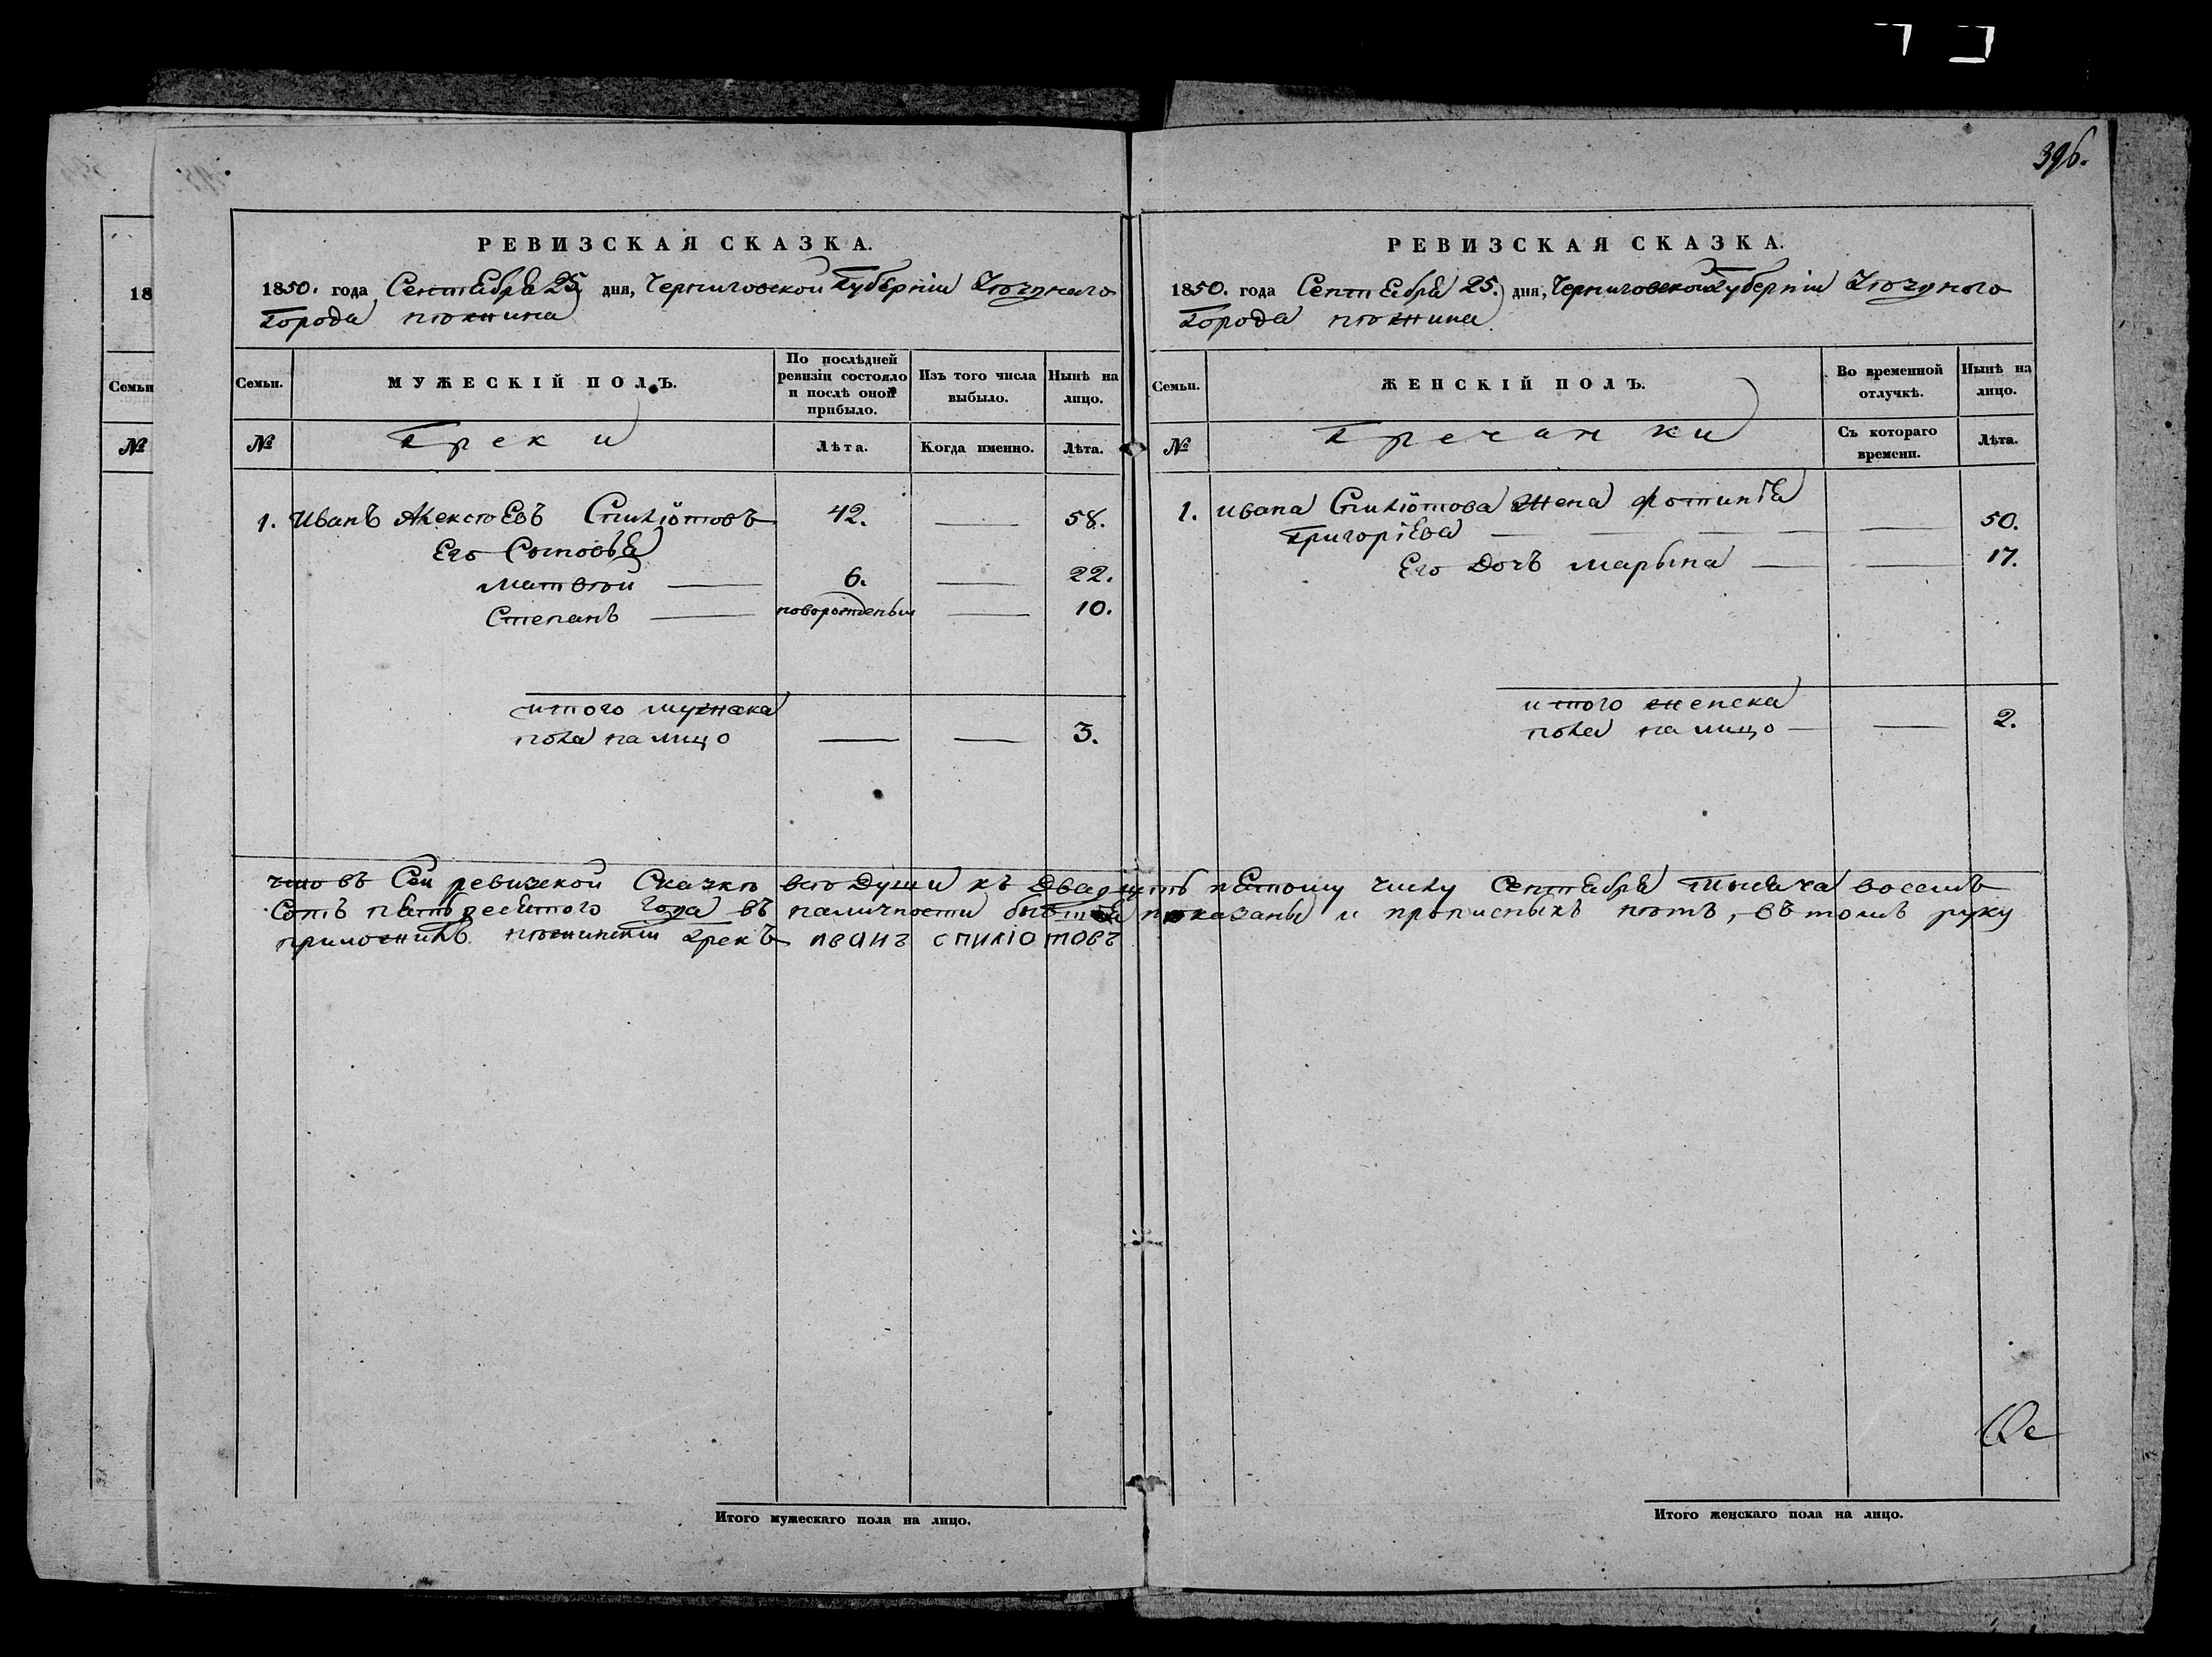 396.
РЕВИЗСКАЯ СКАЗКА.
1850. года Сентебря 25 дня, Черниговской Губернiи Уѣзднаго
Города Нѣжина
Семьи.
МУЖЕСКІЙ ПОЛЪ.
По послѣдней ревизіи состояло и послѣ оной прибыло.
Изъ того числа выбыло.
Нынѣ на лицо.
№
Греки
Лѣта.
Когда именно.
Лѣта.
1. Иванъ Алексѣевъ Спиліотовъ 42. — 58.
Его Сыновья
Матвѣй — 6. — 22.
Степанъ — новорожденый — 10.
итого мужска
пола на лицо — — 3.
РЕВИЗСКАЯ СКАЗКА.
1850. года Сентебря 25. дня, Черниговской Губерніи Уѣзднаго
Города Нѣжина.
Семьи.
ЖЕНСКІЙ ПОЛЪ.
Во временной отлучкѣ.
Нынѣ на лицо.
№
Гречанки
Съ котораго времени.
Лѣта.
1. Ивана Спиліотова жена Фотинія
Григоріева — — 50.
Его Дочь Марьяна — — 17.
итого женска
пола на лицо — — 2.
что въ Сей ревизской Сказкѣ всѣ Души къ Двадцать пятому числу Сентебря тысяча восемъ
Сотъ пятьдесятого Года въ наличности бывшiя показаны и прописныхъ нѣтъ, въ томъ руку
приложилъ нѣжинскiй грекъ иванъ спилiотовъ
Итого мужескаго пола на лицо.
Итого женскаго пола на лицо.
18
Семьи
№